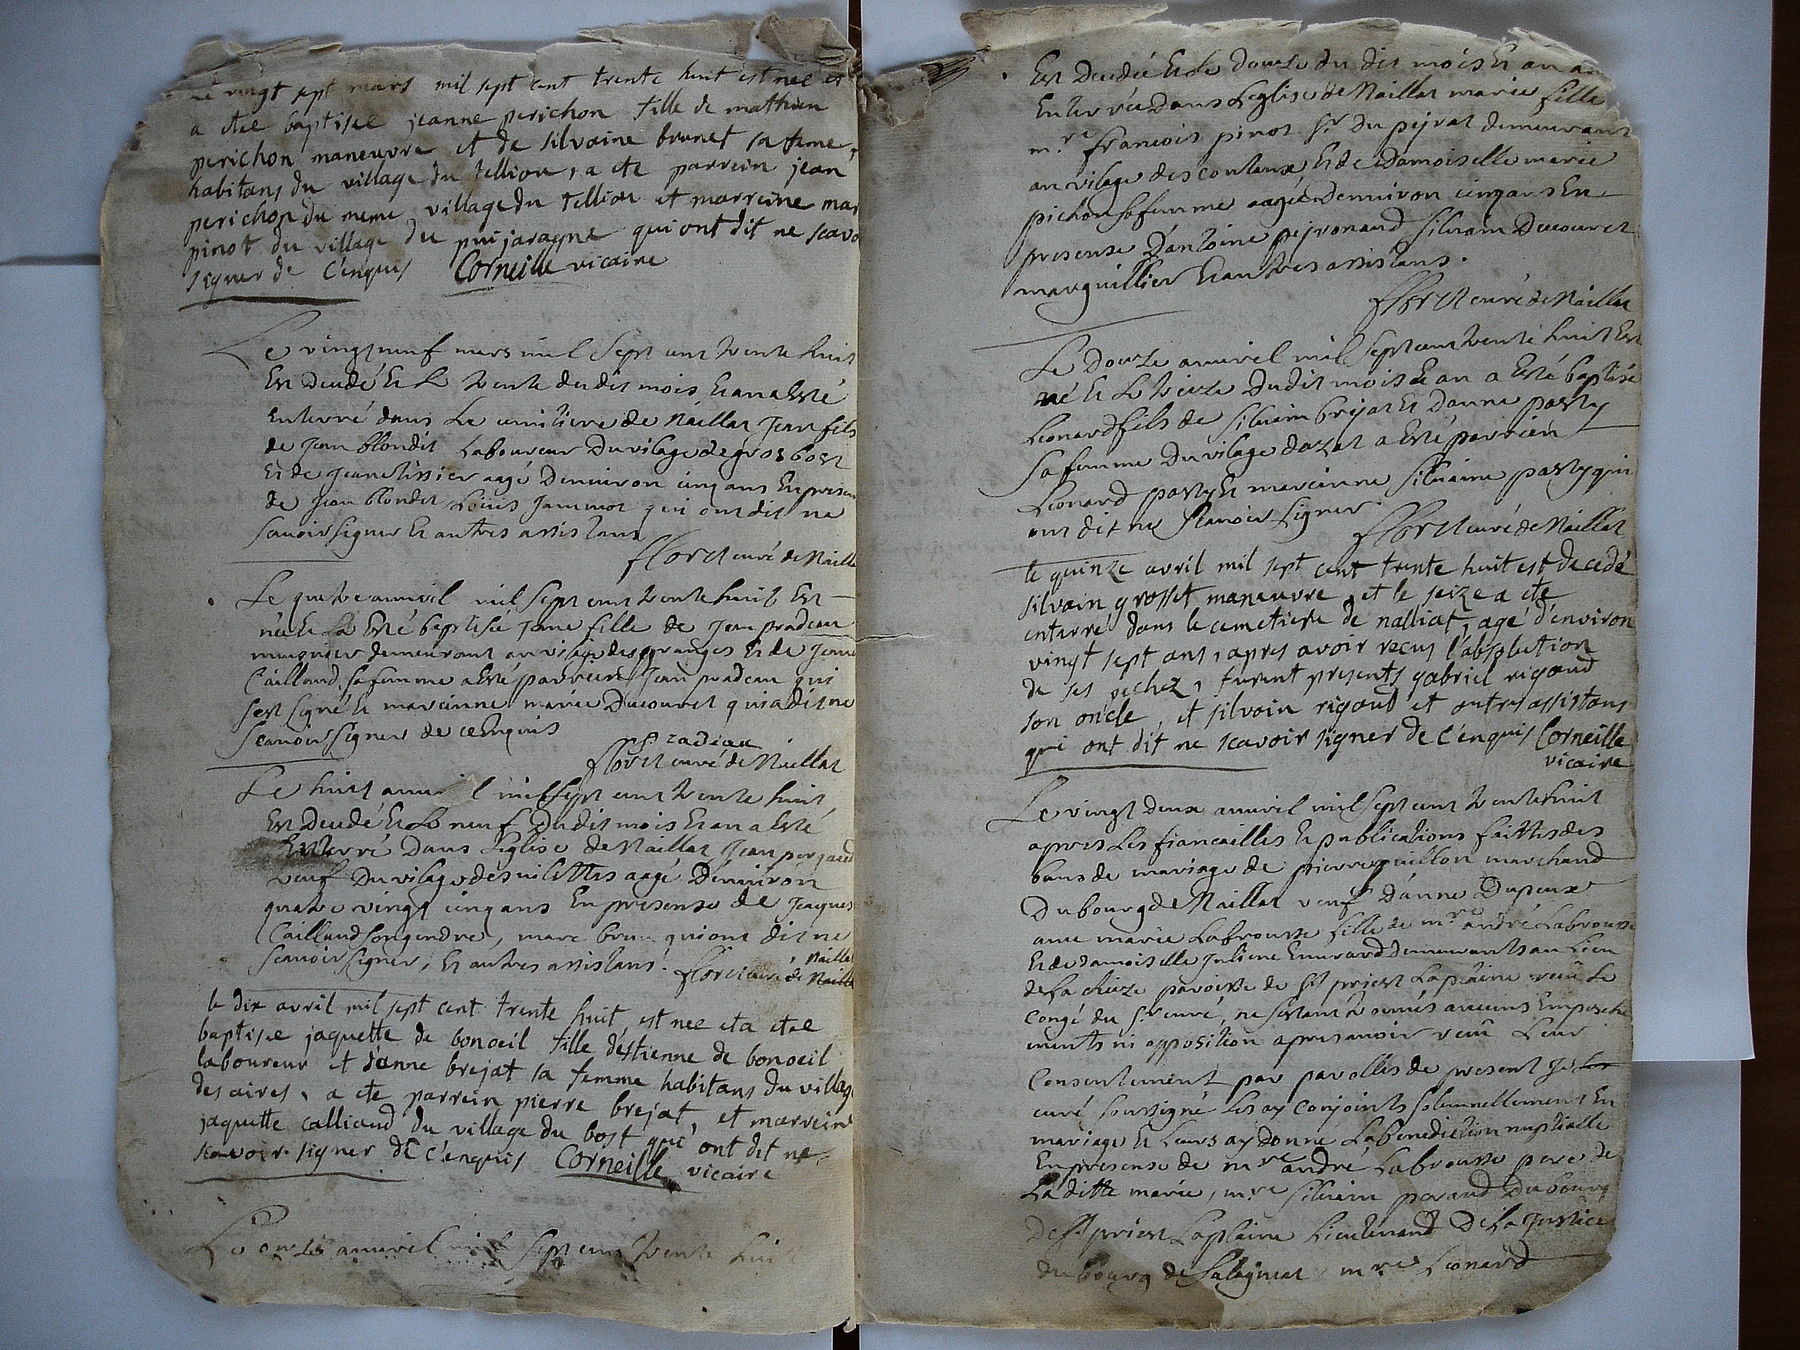 Le vingt sept mars mil sept cent trente huit est nee et
a etee baptisee jeanne perichon fille de mathieu
perichon maneuvre et de silvaine brunet sa feme,
habitans du village du tellion, a ete parrein jean
perichon du meme village du tellion et marreine mar
pinot du village du puijaragne qui ont dit ne scavo
signer de c'enquis Corneille vicaire
Le vingt neuf mars mil sept cent trente huit
Est decedé Et le trente du dit mois Et an a Esté
Enterré dans Le cimitiere de Naillat Jean fils
de Jean blondet Laboureur Du vilage de gros bost
Et de Jeane tissier aagé Denuiron cinq ans En presen
de Jean blondet Louis Jammot qui ont dit ne
scauoir signer Et autres assistans
ffloret curé de Naillat
Le quatre auuril mil sept cent trente huit Est
née Et La Esté baptisée Jane fille de Jean pradeau
meugnier demeurant au vilage des granges Et de Jeane
Caillaud sa femme a Esté parrein Jean pradeau qui
sest signé Et mareinne marie Ducouret qui a dit ne
scauoir signer de ce Enquis
ffloret curé de Naillat
Le huit auuril mil sept cent trente huit
Est Decedé Et Le neuf Dudit mois Et an a Esté
Enterré Dans Leglise de Naillat Jean
veuf Du vilage des aagé Denuiron
quatre vingt cinq ans En presense de Jacques
Caillaud son gendre, marc brun qui ont dit ne
scauoir signer, Et autres assistans. Naillat
ffloret curé de Naillat
le dix avril mil sept cent trente huit est nee et a etee
baptisee jaquette de bonoeil fille d'estienne de bonoeil
laboureur et danne brejat sa femme habitans du village
des aires, a ete parrein pierre brejat, et marreine
jaquette calliaud du village du bost qui ont dit ne
scavoir signer de c'enquis Corneille vicaire
Le onze auuril mil sept cent trente huit
Est Decedée Et Le douze du dit mois Et an a
Enterrée Dans Leglise de Naillat marie fille
mre francois pinot sr du peyrat demeurant
au vilage des coutaux Et de Damoiselle marie
pichon sa femme aagée denuiron cinq ans En
presense Dantoine peyronaud siluain Ducouret
marguillier Et autres assistans.
ffloret curé de Naillat
Le Douze auuril mil sept cent trente huit Est
né Et Le treize Du dit mois Et an a Esté baptisé
Leonard fils de siluain brijat Et Danne pasty
sa femme Du vilage dazat a Esté parrein
Leonard pasty Et mareinne siluaine pasty qui
ont dit ne scauoir signer. ffloret curé de Naillat
le quinze avril mil sept cent trente huit est decedé
silvain grosset maneuvre, et le seize a ete
enterré dans le cemetiere de nalliat, agé d'environ
vingt sept ans, apres avoir recus l'absolution
de ses pechez, furent presents gabriel rigaud
son oncle, et silvain rigaud et autres assistans
qui ont dit ne scavoir signer de c'enquis Corneille
vicaire
Le vingt deux auuril mil sept cent trente huit
apres Les fiancailles Et publications faittes des
bans de mariage de pierre peillon marchand
Du bourg de Naillat veuf Danne Dupeux
auec marie Labrousse fille de mre andré Labrousse
Et de damoiselle Juliene Emerand demeurants au Lieu
de La cheze paroisse de st priest Laplaine veu Le
congé du sr curé, ne sestant trouués aucuns Empeche
ments ni opposition apres auoir receu Leur
Consentement par parolles de present Je
curé soussigné Les ay conjoints solemnellement En
mariage Et Leurs ay donné La benediction nuptialle
En presense de mre andré Labrousse pere de
La ditte marie, mre siluain perand Du bourg
De st priest Laplaine Lieutenant De La Justice
du bourg de Salagnat mre Leonard